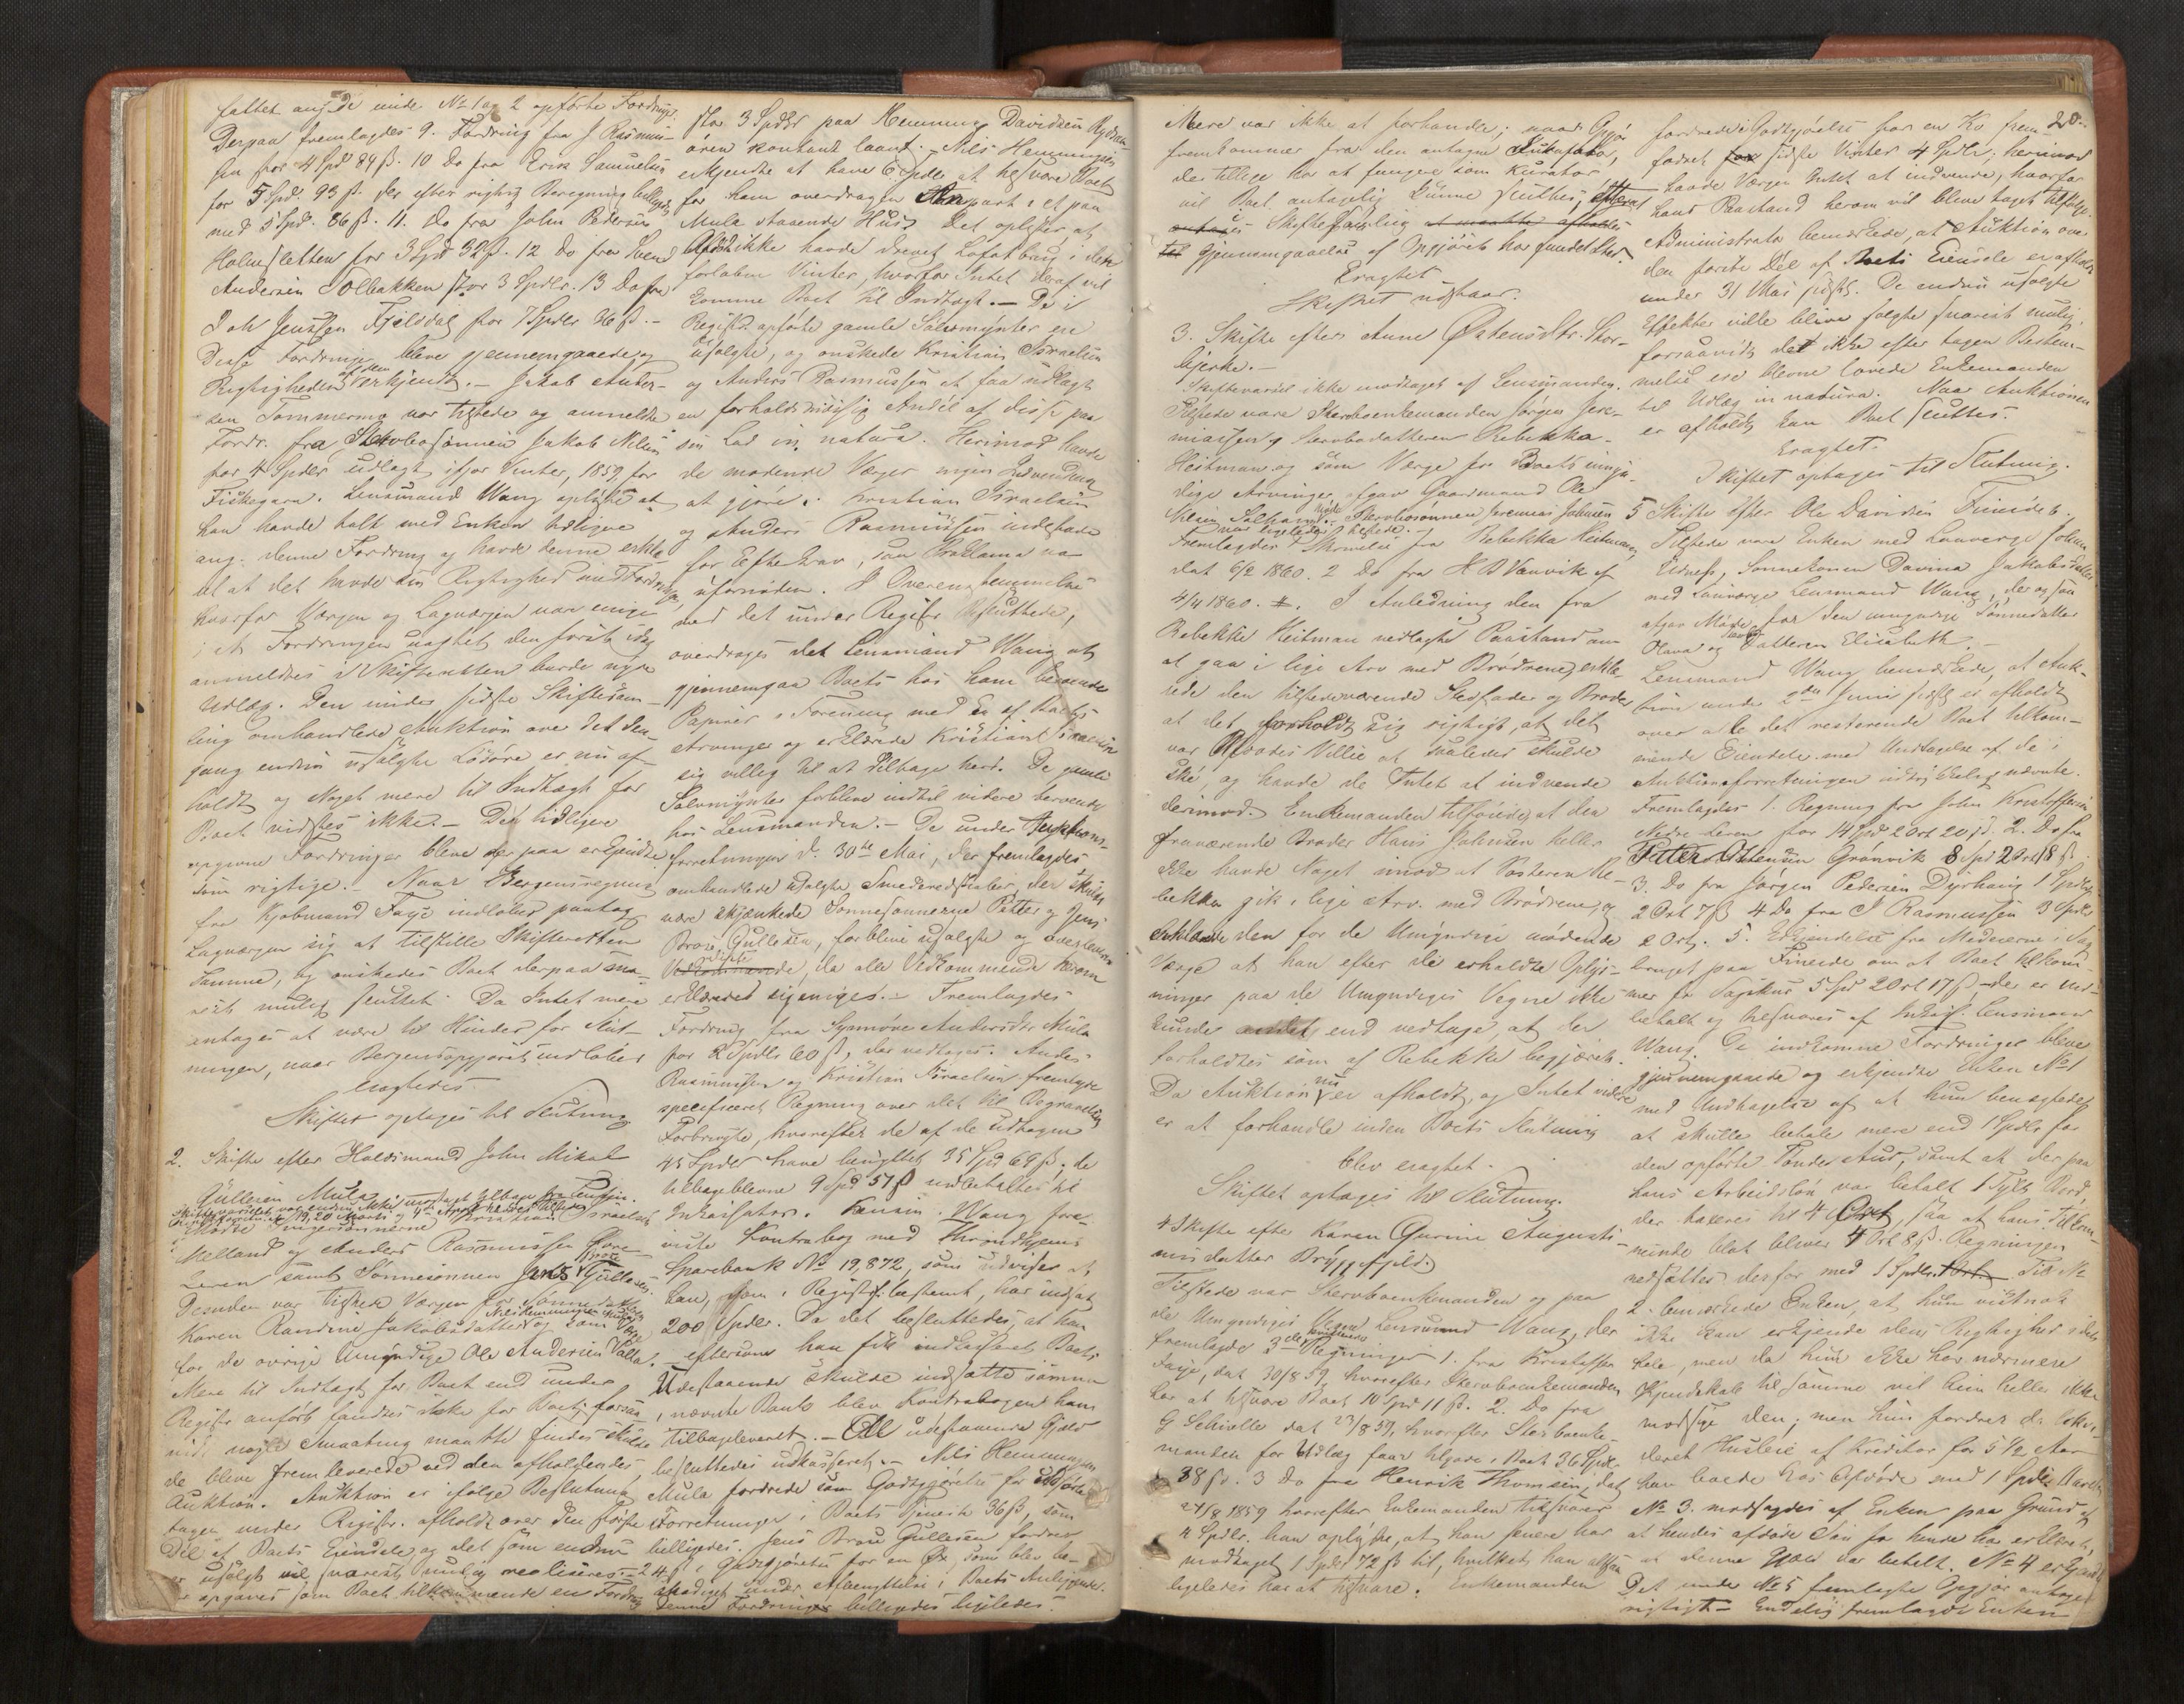 fattet ang. de under No 1 og 2 opførte Fordringer.
Derpaa fremlagdes 9. Fordring fra J. Rasmus-
sen for 4 Spd 84 ß. 10 Do fra Erik Samuelsen
for 5 Spd. 93 ß. der efter rigtig Beregning
med 5 Spd. 86 ß. 11. Do fra John Pedersen
Holmsletten for 3 Spd 32 ß. 12 Do fra
Andersen Solbakken stor 3 Spdlr. 13 Do fra
Joh Jenssen Fjelsdal for 7 Spdlr 36 ß. -
Disse Fordringer bleve gjennemgaaede og
Rigtigheden af dem erkjendt. - Jakob Ander-
sen Tømmermo var tilstede og anmeldte en
Fordr. fra Stervbosønnen Jakob Nilsen
for 4 Spdlr udlagt ifjor Vinter, 1859, for
Fiskegarn. Lensmand Wang oplyste at
han havde talt med Enken tidligere
ang. denne Fordring og havde denne erklæ-
ret at det havde sin Rigtighed med Fordringen,
hvorfor Værgen og Lagværgen var enige
i at Fordringen uagtet den først idag
anmeldtes i Skifteretten burde nyde
Udlæg. Den under sidste Skiftesam-
ling omhandlede Auktion over det den-
gang endnu usolgte Løsøre er nu af-
holdt og Noget mere til Indtægt for
Boet vidstes ikke. - De tidligere
opgivne Fordringer bleve derpaa erkjendte
som rigtige. - Naar Bergensregning
fra Kjøbmand Faye indløber paatog
Lagværgen sig at tilstille Skifteretten
Samme, og ønskedes Boet derpaa sna-
rest mulig sluttet. Da Intet mere
antages at være til Hinder for Slut-
ningen, naar Bergensopgjøret indløber
eragtedes
Skiftet optages til Slutning
2. Skifte efter Huusmand John Mikal
Gullesen Mula
Skiftevariulet var endnu ikke modtaget tilbage fra Lensm.
Mødte Svigersønnerne Kristian Israelsen
Melland og Anders Rasmussen
Leren samt Sønnesønnen Jens Brose Gullesen.
Desuden var tilstede Værgen for Sønnedatteren
Karen Randine Jakobsdatter og som Værge
for de øvrige Umyndige Ole Andersen Valla.
Mere til Indtægt for Boet end under
Registr. anført fandtes ikke for Boet; forsaa-
vidt nogle Smaating maatte findes skulde
de blive fremleverede ved den afholdendes
Auktion. Auktion er ifølge Beslutning
tagen under Registr. afholdt over den største
Del af Boets Eiendele og det som endnu
er usolgt vil snarest mulig realiseres. -
opgaves som Boet tilkommende en Fordring
stor 3 Spdlr paa Hemming Davidsen
øren kontant laant. - Nils Hemmingsen
erkjendte at have 6 Spdlr at tilsvare Boet
for ham overdragen Anpart i et paa
Mula staaende Huus. Det oplystes, at
Afdøde ikke havde drevet Lofotbrug i den
forløbne Vinter, hvorfor Intet deraf vil
komme Boet til Indtægt. - De i
Registr. opførte gamle Sølvmynter ere
usolgte, og ønskede Kristian Israelsen
og Anders Rasmussen at faa udlagt
en forholdsmæssig Andel af disse paa
sin Lod in natura. Herimod havde
de mødende Værger ingen Indvending
at gjøre. Kristian Israelsen
og Anders Rasmussen indestaae
for Efterkrav, saa Proklama er
ufornøden. I Overensstemmelse
med det under Registr. besluttede,
overdroges det Lensmand Wang at
gjennemgaa Boets hos ham beroende
Papirer i Forening med En af Boets
Arvinger og erklærede Kristian Israelsen
sig villig til at deltage heri. De gamle
Sølvmynter forbleve indtil videre beroende
hos Lensmanden. - De under Auktions-
forretningen d. 30te Mai, der fremlagdes
omhandlede usolgte Smederedskaber, der skulde
være skjænkede Sønnesønnerne Petter og Jens
Brose Gullesen, forblive usolgte og overleveres
disse, da alle Vedkommende herom
erklærede sig enige. - Fremlagdes
Fordring fra Synnøve Andersdtr Mula
for 2 Spdlr 60 ß, der vedtoges. Anders
Rasmussen og Kristian Israelsen fremlagde
specificeret Regning over det til Begravelsen
Forbrugte, hvorefter de af de udtagne
45 Spdlr have benyttet 35 Spd 69 ß. de
tilbageblevne 9 Spd 51 ß indbetaltes til
Inkassator. Lensm. Wang fore-
viste Kontrabog med Throndhjems
Sparebank No 19,872, som udviser at
han, som i Registr. bestemt, har indsat
200 Spdlr. Da det besluttedes, at han
- eftersom han fik indkasseret Boets
Udestaaende skulde indsætte samme
i nævnte Bank blev Kontrabogen ham
tilbageleveret. - Al udestaaende Gjæld
besluttedes indkasseret. - Nils Hemmingsen
Mula fordrede som Godtgjørelse for udførte
Forretninger i Boets Tjeneste 36 ß, som
billigedes. Jens Brose Gullesen fordrer
24 ß i Godtgjørelse for en Øx som blev be-
skadiget under Afbenyttelse i Boets Anliggende.
Denne Fordring billigedes ligeledes.
20.
Mere var ikke at forhandle; naar Opgjør
fremkommer fra den antagne Inkassator,
der tillige har at fungere som Kurator
vil Boet antagelig kunne sluttes, efterat
Skiftesamling
til Gjennemgaaelse af Opgjøret har fundet Sted.
Eragtet
Skiftet udstaar.
3. Skifte efter Anne Østensdtr. Stor-
bjerke. -
Skiftevariul ikke modtaget af Lensmanden.
Tilstede vare Stervboenkemanden Jørgen Jere-
miassen, Stervbodatteren Rebekka
Heitman og som Værge for Boets umyn-
dige Arvinger afgav Gaardmand Ole
Olsen Solhaug Møde. Stervbosønnen Jeremias Johnsen
var ligeledes tilstede. -
Fremlagdes 1 Skrivelse fra Rebekka Heitman,
dat 6/2 1860. 2 Do fra H B Vanvik af
4/4 1860. I Anledning den fra
Rebekka Heitman nedlagte Paastand om
at gaa i lige Arv med Brødrene, erklæ-
rede den tilstedeværende Stedfader og Broder
at det forholdt sig rigtigt, at det
var Afdødes Villie at saaledes skulde
ske, og havde de Intet at indvende
derimod. Enkemanden tilføiede, at den
fraværende Broder Hans Johnsen heller
ikke havde Noget imod at Søsteren Re-
bekka gik i lige Arv med Brødrene, og
erklærede den for de Umyndige mødende
Værge at han efter de erholdte Oplys-
ninger paa de Umyndiges Vegne ikke
kunde andet end vedtage, at der
forholdtes som af Rebekka begjæret.
Da Auktion nu er afholdt, og Intet videre
er at forhandle inden Boets Slutning
blev eragtet.
Skiftet optages til Slutning.
4 Skifte efter Karen Gurine Augusti-
nusdatter Bryggfjeld.
Tilstede var Stervboenkemanden og paa
de Umyndiges Vegne Lensmand Wang, der
fremlagde 3de Regninger 1. fra Kristoffer
Faye, dat 30/8 59, hvorefter Stervboenkemanden
har at tilsvare Boet 10 Spd 11 ß. 2. Do fra
G Schjelle dat 23/8 59, hvorefter Stervboenke-
manden for Udlæg faar tilgode i Boet 36 Spd.
38 ß. 3 Do fra Henrik Thomsen, dat
27/8 1859 hvorefter Enkemanden tilsvarer
2 Spdlr. han oplyste, at han senere har
modtaget 1 Spdlr 72 ß til, hvilket han altsaa
ligeledes har at tilsvare. Enkemanden
fordrede i Godtgjørelse for en Ko frem-
fødset sidste Vinter 4 Spdlr, herimod
havde Værgen Intet at indvende, hvorfor
hans Paastand herom vil blive taget tilfølge.
Administrator bemærkede, at Auktion over
den første Del af Boets Eiendele er afholdt
under 31 Mai sidstl. De endnu usolgte
Effekter ville blive solgte snarest mulig,
forsaavidt det ikke efter tagen Bestem-
melse ere blevne lovede Enkemanden
til Udlæg in natura. Naar Auktionen
er afholdt kan Boet sluttes.
Eragtet.
Skiftet optages til Slutning.
5 Skifte efter Ole Davidsen Finneide.
Tilstede var Enken med Lauværge Johan
Udness, Sønnekonen Davina Jakobsdatter
med Lauværge Lensmand Wang, der ogsaa
afgav Møde for den umyndige Sønnedatter
Olava og Datteren Elisabeth. -
Lensmand Wang bemærkede, at Auk-
tion under 2den Juni sidstl. er afholdt
over alle det resterende Boet tilkom-
mende Eiendele med Undtagelse af de i
Auktionsforretningen udtrykkelig nævnte.
Fremlagdes 1. Regning fra John Kristoffersen
Nedre Leren for 14 Spd 2 Ort 20 ß. 2. Do fra
Peter Ottensen Grønvik 8 Spd 2 Ort 18 ß
3. Do fra Jørgen Pedersen Dyrhaug 1 Spdlr
2 Ort 7 ß 4 Do fra J Rasmussen 3 Spdlr
2 Ort. 5. Erkjendelse fra Medeierne i Sag-
bruget paa Fineide om at Boet tilkom-
mer for Sagskur 5 Spd 2 Ort 17 ß, - der er ind-
betalt og tilsvares af Inkass. Lensmand
Wang. De indkomne Fordringer bleve
gjennemgaaede og erkjendte Enken No 1
med Undtagelse af at hun benægtede
at skulle betale mere end 1 Spdlr for
den opførte Tønde Aud, samt at der paa
hans Arbeidsløn var betalt 1 Tylt Bord,
der taxeres til 4 Ort, saa at hans Tilkom-
mende blot bliver 4 Ort 8 ß. Regningen
nedsattes derfor med 1 Spdlr. Til No
2 bemærkede Enken, at hun vistnok
ikke kan erkjende dens Rigtighed i det
hele, men da hun ikke har nærmere
Kjendskab til samme vil hun heller ikke
modsige den; men hun fordrer
deret Husleie af Kreditor for 5 1/2 Aar
han boede hos Afdøde med 1 Spdlr Aaret.
No 3. modsagdes af Enken paa Grund af
at hendes afdøde Søn for hende har erklæret,
at denne Gjæld var betalt. No 4 erkjendt
Det under No 5 fremlagte Opgjør antages
rigtigt. - Endelig fremlagde Enken